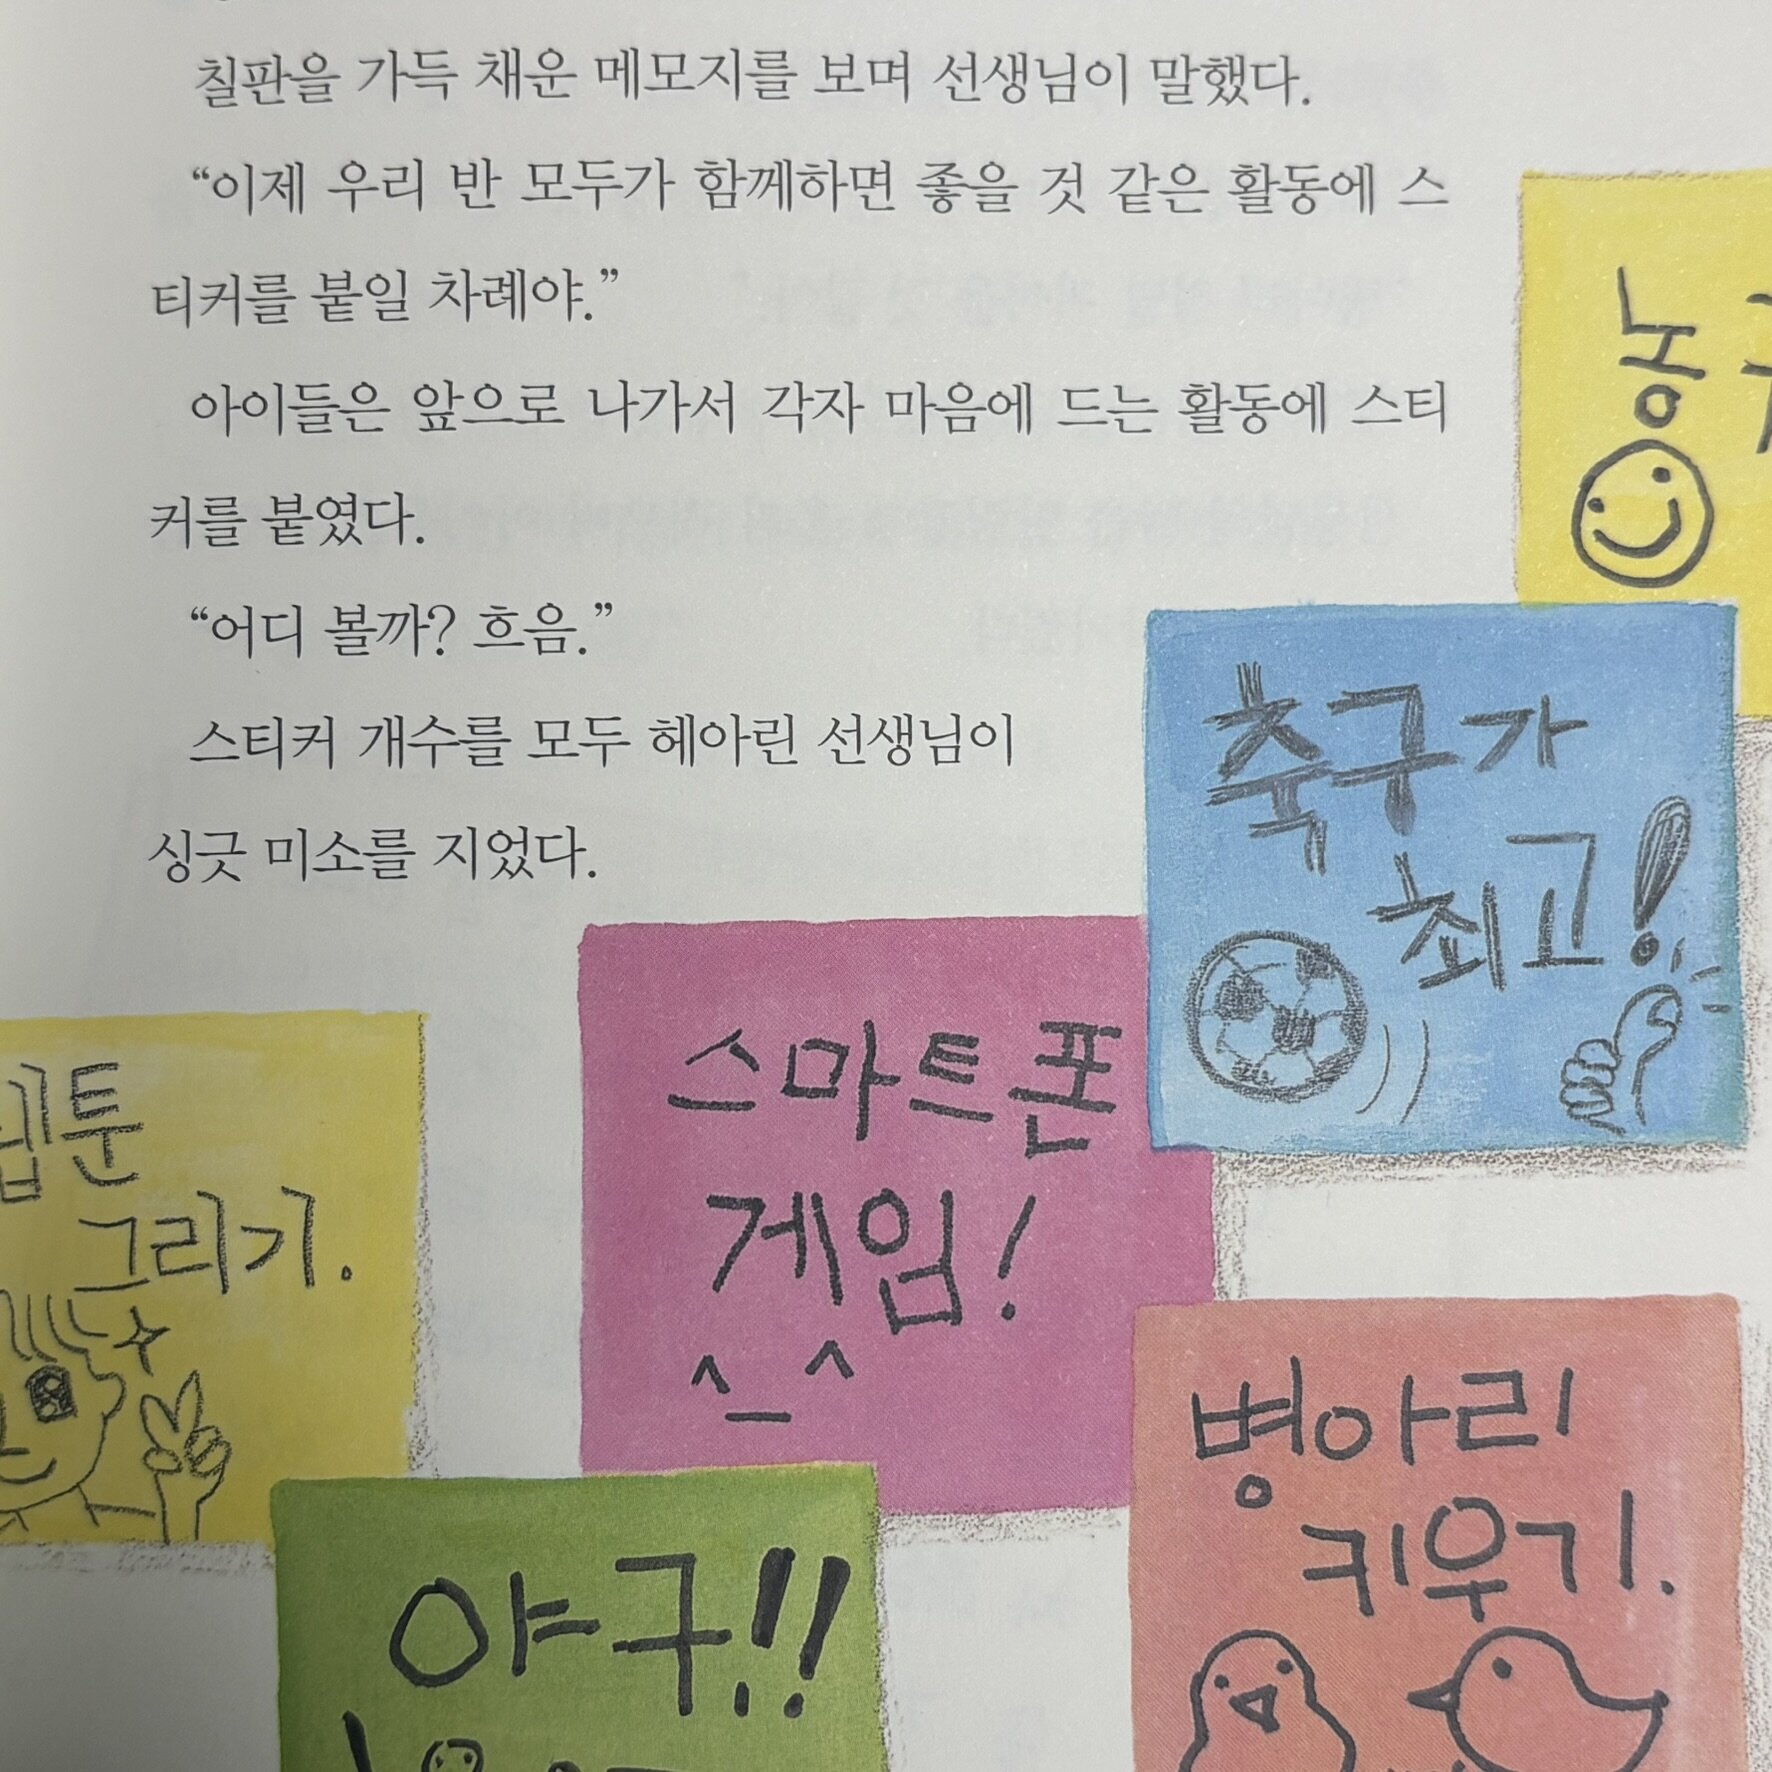 칠판을 가득 채운 메모지를 보며 선생님이 말했다.
“이제 우리 반 모두가 함께하면 좋을 것 같은 활동에 스
티커를 붙일 차례야.”
아이들은 앞으로 나가서 각자 마음에 드는 활동에 스티
커를 붙였다.
“어디 볼까? 흐음.”
스티커 개수를 모두 헤아린 선생님이
싱긋 미소를 지었다.
농
축구가
최고!
스마트폰
게임!
^_^
웹툰
그리기.
병아리
키우기.
야구!!